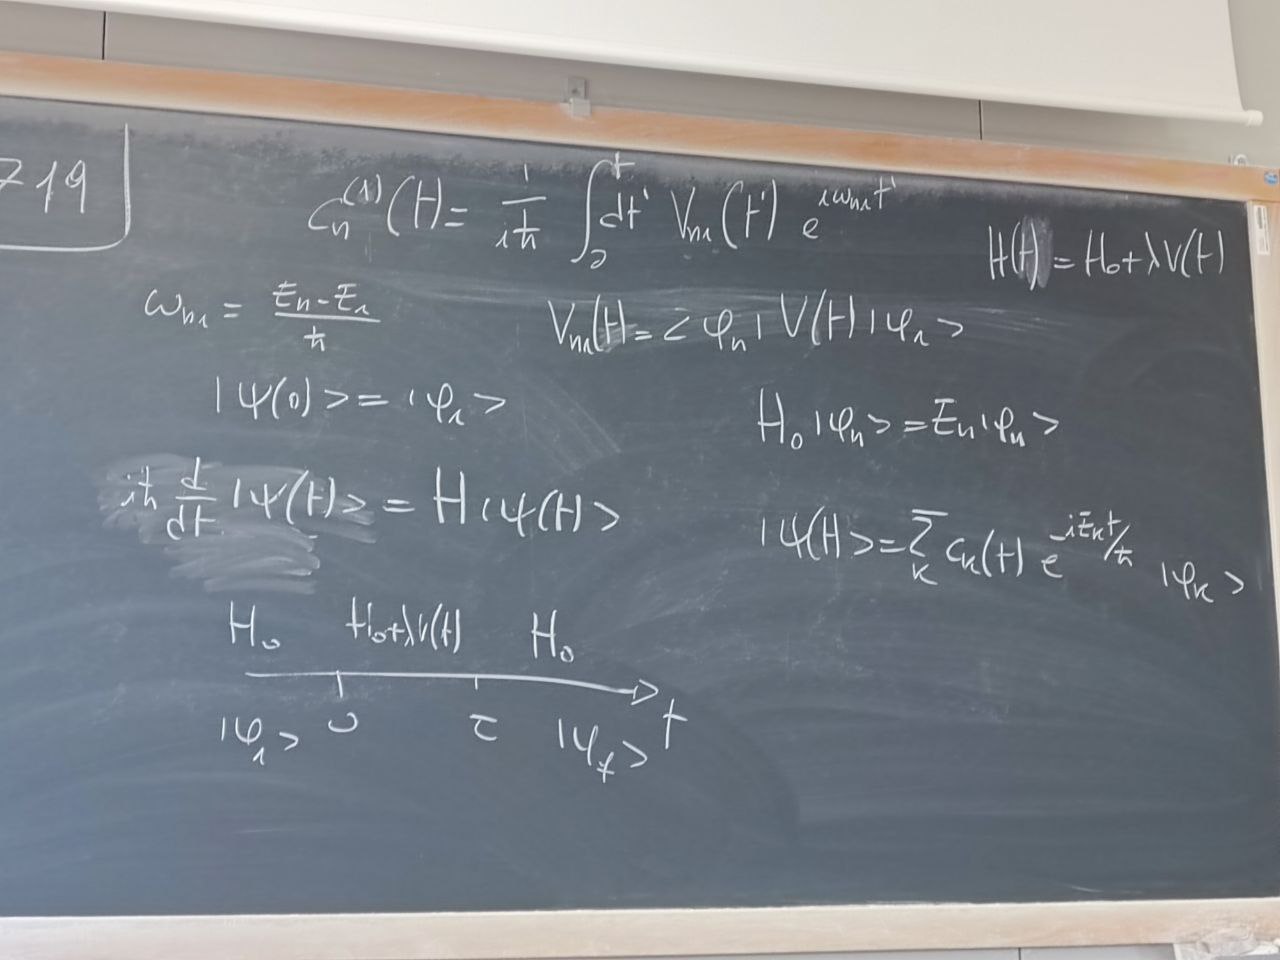 719
c_n^{(1)}(t) = \frac{1}{iℏ} ∫_0^t dt' V_{n1}(t') e^{iω_{n1}t'}
H(t) = H_0 + λV(t)
ω_{n1} = \frac{E_n - E_1}{ℏ}
V_{n1}(t) = <φ_n | V(t) | φ_1>
|ψ(0)> = |φ_1>
H_0 |φ_n> = E_n |φ_n>
iℏ \frac{d}{dt} |ψ(t)> = H |ψ(t)>
|ψ(t)> = Σ_k c_k(t) e^{-iE_k t/ℏ} |φ_k>
H_0 H_0+λV(t) H_0
0 τ t
|φ_1> |ψ_f>